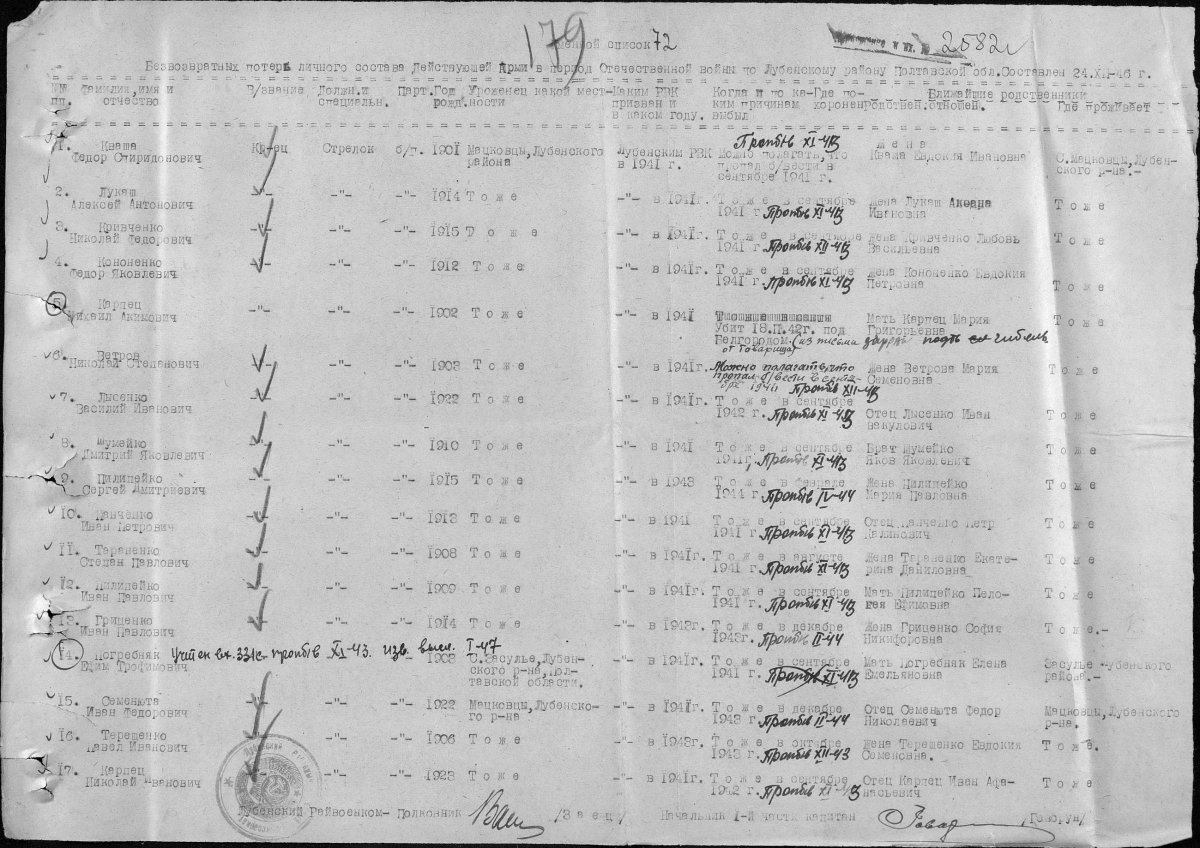 179
менной список 72
2582
Безвозвратных потерь личного состава Действующей Арми в период Отечественной войны по Лубенскому району Полтавской обл. Составлен 24.XII-46 г.
№№ Фамилия, имя и В/звание Должн.и Парт. Год Уроженец какой мест- Каким РВК Когда и по ка- Где по- Ближайшие родственники
пп. отчество специальн. рожд. ности призван и ким причинам хоронен Родствен.отношен. Где проживает
в каком году. выбыл
Пропб/в XI-43 Жена
1. Кваша Кр-ец Стрелок б/п. 1901 Мацковцы, Лубенского Лубенским РВК Можно полагать, что Кваша Евдокия Ивановна С.Мацковцы, Лубен-
Федор Спиридонович района в 1941 г. пропал б/вести в ского р-на.-
сентябре 1941 г.
2. Лукаш -"- -"- -"- 1914 Тоже -"- в 1941г. Тоже в сентябре Жена Лукаш Тоже
Алексей Антонович 1941 г. Пропб/в XI-43 Ивановна
3. Кривченко -"- -"- -"- 1915 Тоже -"- в 1941г. Тоже в сентябре Жена Кривченко Любовь Тоже
Николай Федорович 1941 г. Пропб/в XII-43 Васильевна
4. Кононенко -"- -"- -"- 1912 Тоже -"- в 1941г. Тоже в сентябре Жена Кононенко Евдокия Тоже
Федор Яковлевич 1941 г. Пропб/в XI-43 Петровна
5. Карпец -"- -"- -"- 1902 Тоже -"- в 1941 Мать Карпец Мария
Михаил Акимович Убит 18.П.42г. под Григорьевна
Белгородом (из письма
от товарища)
6. Ветров -"- -"- -"- 1903 Тоже -"- в 1941г. Можно полагать, что Жена Ветрова Мария Тоже
Николай Степанович пропал б/вести в сентя- Семеновна
бре 1941 Пропб/в XII-43
7. Лысенко -"- -"- -"- 1922 Тоже -"- в 1941г. Тоже в сентябре
Василий Иванович 1942 г. Пропб/в XI-43 Отец Лысенко Иван Тоже
Вакулович
8. Шумейко -"- -"- -"- 1910 Тоже -"- в 1941 Тоже в сентябре Брат Шумейко Тоже
Дмитрий Яковлевич 1941г. Пропб/в XI-43 Яков Яковлевич
9. Пилипейко -"- -"- -"- 1915 Тоже -"- в 1943 Тоже в феврале Жена Пилипейко Тоже
Сергей Дмитриевич 1944 г. Пропб/в IV-44 Мария Павловна
10. Панченко -"- -"- -"- 1913 Тоже -"- в 1941 Тоже в сентябре Отец Панченко Петр Тоже
Иван Петрович 1941 г. Пропб/в XI-43 Калинович
11. Тараненко -"- -"- -"- 1908 Тоже -"- в 1941г. Тоже в августе Жена Тараненко Екате- Тоже
Степан Павлович 1941 г. Пропб/в XI-43 рина Даниловна
12. Пилипейко -"- -"- -"- 1909 Тоже -"- в 1941г. Тоже в сентябре Мать Пилипейко Пело- Тоже
Иван Павлович 1941 г. Пропб/в XI-43 гея Ефимовна
13. Гриценко -"- -"- -"- 1914 Тоже -"- в 1943г. Тоже в декабре Жена Гриценко София Тоже.-
Иван Павлович 1943г. Пропб/в II-44 Никифоровна
Учтен вх.331с. пропб/в XI-43. изв. высл. I-47
14. Погребняк 1903 С.Засулье, Лубен- -"- в 1941г. Тоже в сентябре Мать Погребняк Елена Засулье Лубенского
Ефим Трофимович ского р-на, Пол- 1941 г. Пропб/в XI-43 Емельяновна района.-
тавской области.
15. Семенюта -"- -"- -"- 1922 Мацковцы, Лубенско- -"- в 1941г. Тоже в декабре Отец Семенюта Федор Мацковцы, Лубенского
Иван Федорович го р-на 1943 г. Пропб/в II-44 Николаевич р-на.
16. Терещенко -"- -"- -"- 1906 Тоже -"- в 1943г. Тоже в октябре Жена Терещенко Евдокия Тоже.
Павел Иванович 1943 г. Пропб/в XII-43 Семеновна.
17. Карпец -"- -"- -"- 1923 Тоже -"- в 1941г. Тоже в сентябре Отец Карпец Иван Афа- Тоже
Николай Иванович 1942 г. Пропб/в XI-43 насьевич
Лубенский Райвоенком- Полковник /Заец/ Начальник 1-й части капитан